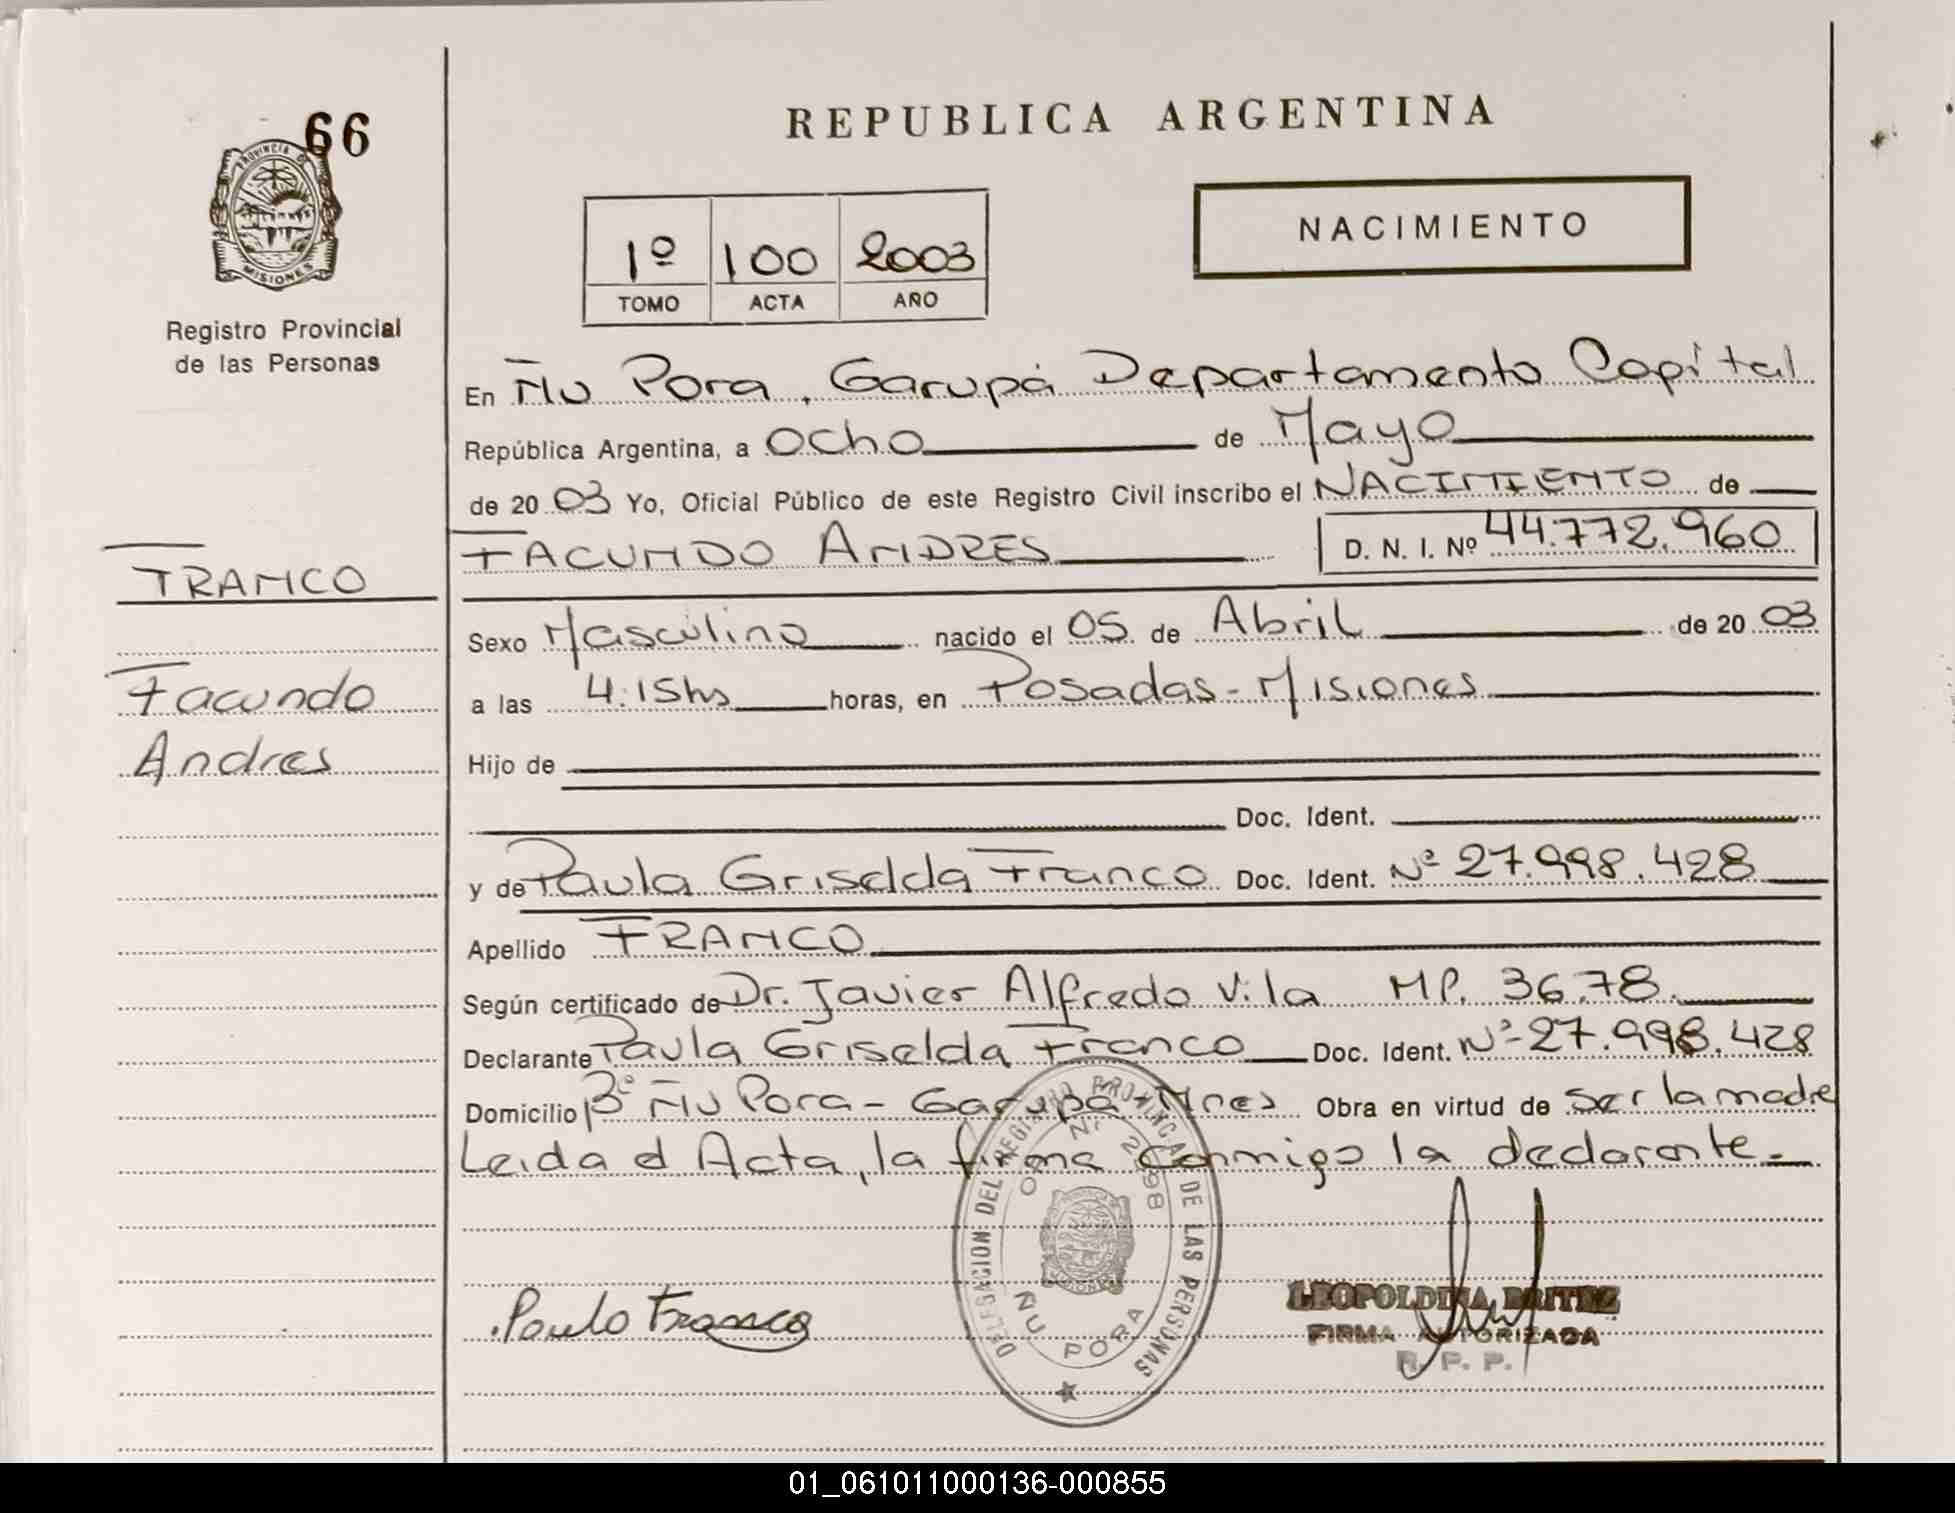 66
PROVINCIA DE
MISIONES
Registro Provincial
de las Personas
REPUBLICA ARGENTINA
1º 100 2003
TOMO ACTA AÑO
NACIMIENTO
En Ñu Pora, Garupá Departamento Capital
República Argentina, a Ocho de Mayo
de 20 03 Yo, Oficial Público de este Registro Civil inscribo el NACIMIENTO de
FACUNDO ANDRES D. N. I. Nº 44.772.960
FRANCO
Facundo
Andres
Sexo Masculino nacido el 05 de Abril de 20 03
a las 4:15hs horas, en Posadas - Misiones
Hijo de
Doc. Ident.
y de Paula Griselda Franco Doc. Ident. Nº 27.998.428
Apellido FRANCO
Según certificado de Dr. Javier Alfredo Vila MP. 3678
Declarante Paula Griselda Franco Doc. Ident. Nº 27.998.428
Domicilio Bº Ñu Pora - Garupá - Mnes Obra en virtud de Ser la madre
Leida el Acta, la firma conmigo la declarante.-
DELEGACION DEL REGISTRO PROVINCIAL DE LAS PERSONAS
ÑU PORA
Paula Franco
LEOPOLDINA BRITEZ
FIRMA AUTORIZADA
R. P. P.
01_061011000136-000855